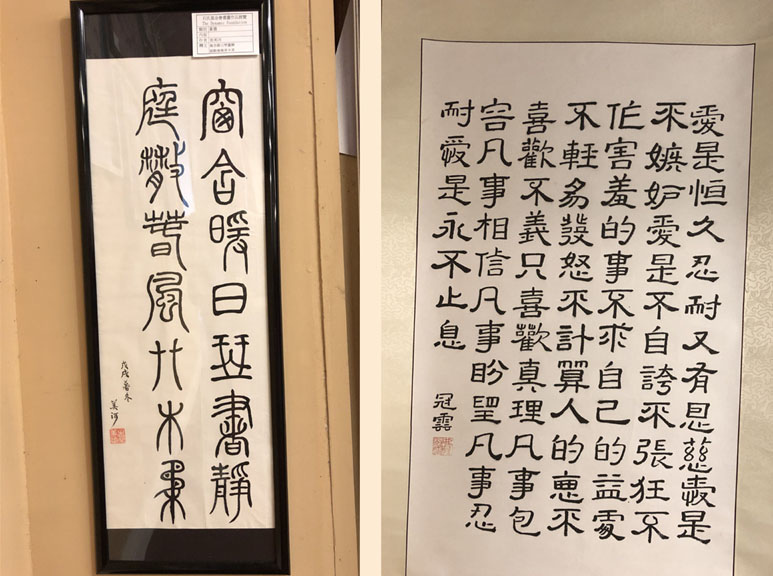 The Foundation
窗含暖日琴書靜
庭散春風木
戊戌冬
美
愛是恒久忍耐又有恩慈愛是
不嫉妒愛是不自誇不張狂不
作害羞的事不求自己的益處
不輕易發怒不計算人的惡不
喜歡不義只喜歡真理凡事包
容凡事相信凡事盼望凡事忍
耐愛是永不止息
冠雲